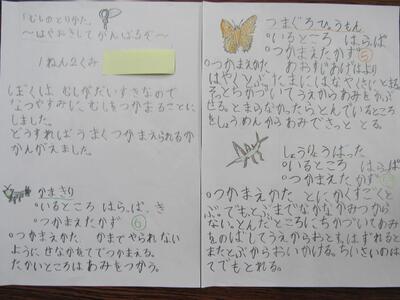 「むしのとりかた。
〜はやおきして がんばるぞ〜
1ねん2くみ
ぼくは、むしがだいすきなので
なつやすみに、むしをつかまることに
しました。
どうすればうまくつかまえられるか
かんがえました。
かまきり
・いるところ はらぱ、き
・つかまえたかず ⑥
○つかまえかた かまでやられない
ように、せなかをてでつかまえる。
たかいところはあみをつかう。
つまぐろひょうもん
・いるところ はらぱ
・つかまえたかず ⑤
○つかまえかた あおすじあげはより
はやくとぶ。たまに、はなやはにとまる。
そっとちかづいてうえからあみをかぶ
せる。とまらなかったら、とんでいるところ
をしょうめんからあみでさっと とる。
しょうりょうばった
・いるところ はらぱ
・つかまえたかず
○つかまえかた とにかくすごくと
ぶ。でもとぶまでなかなかみつから
ない。とんだところにちかづいてあみ
をのばしてうえからおとす。はずれると
またとぶからおいかける。ちいさいのは
てでもとれる。